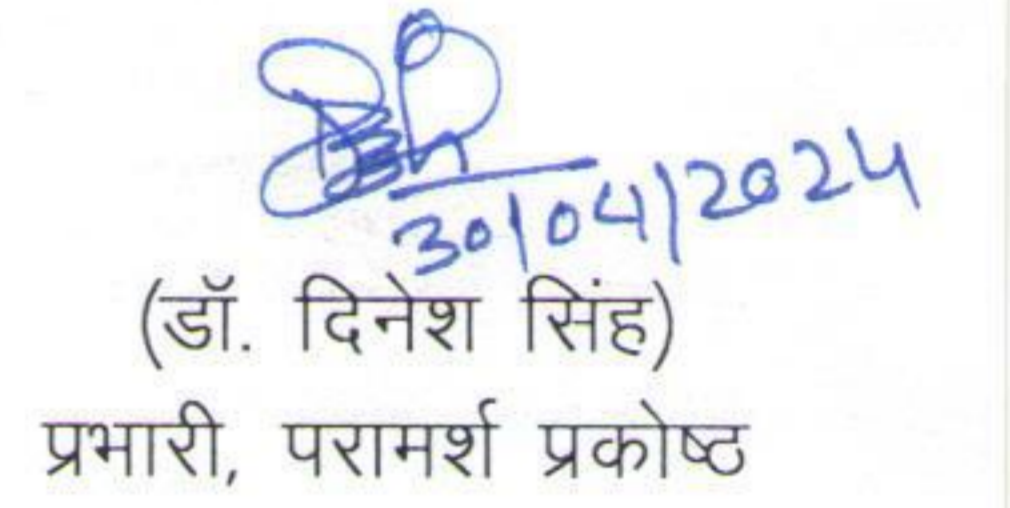 30/04/2024
(डॉ. दिनेश सिंह)
प्रभारी, परामर्श प्रकोष्ठ